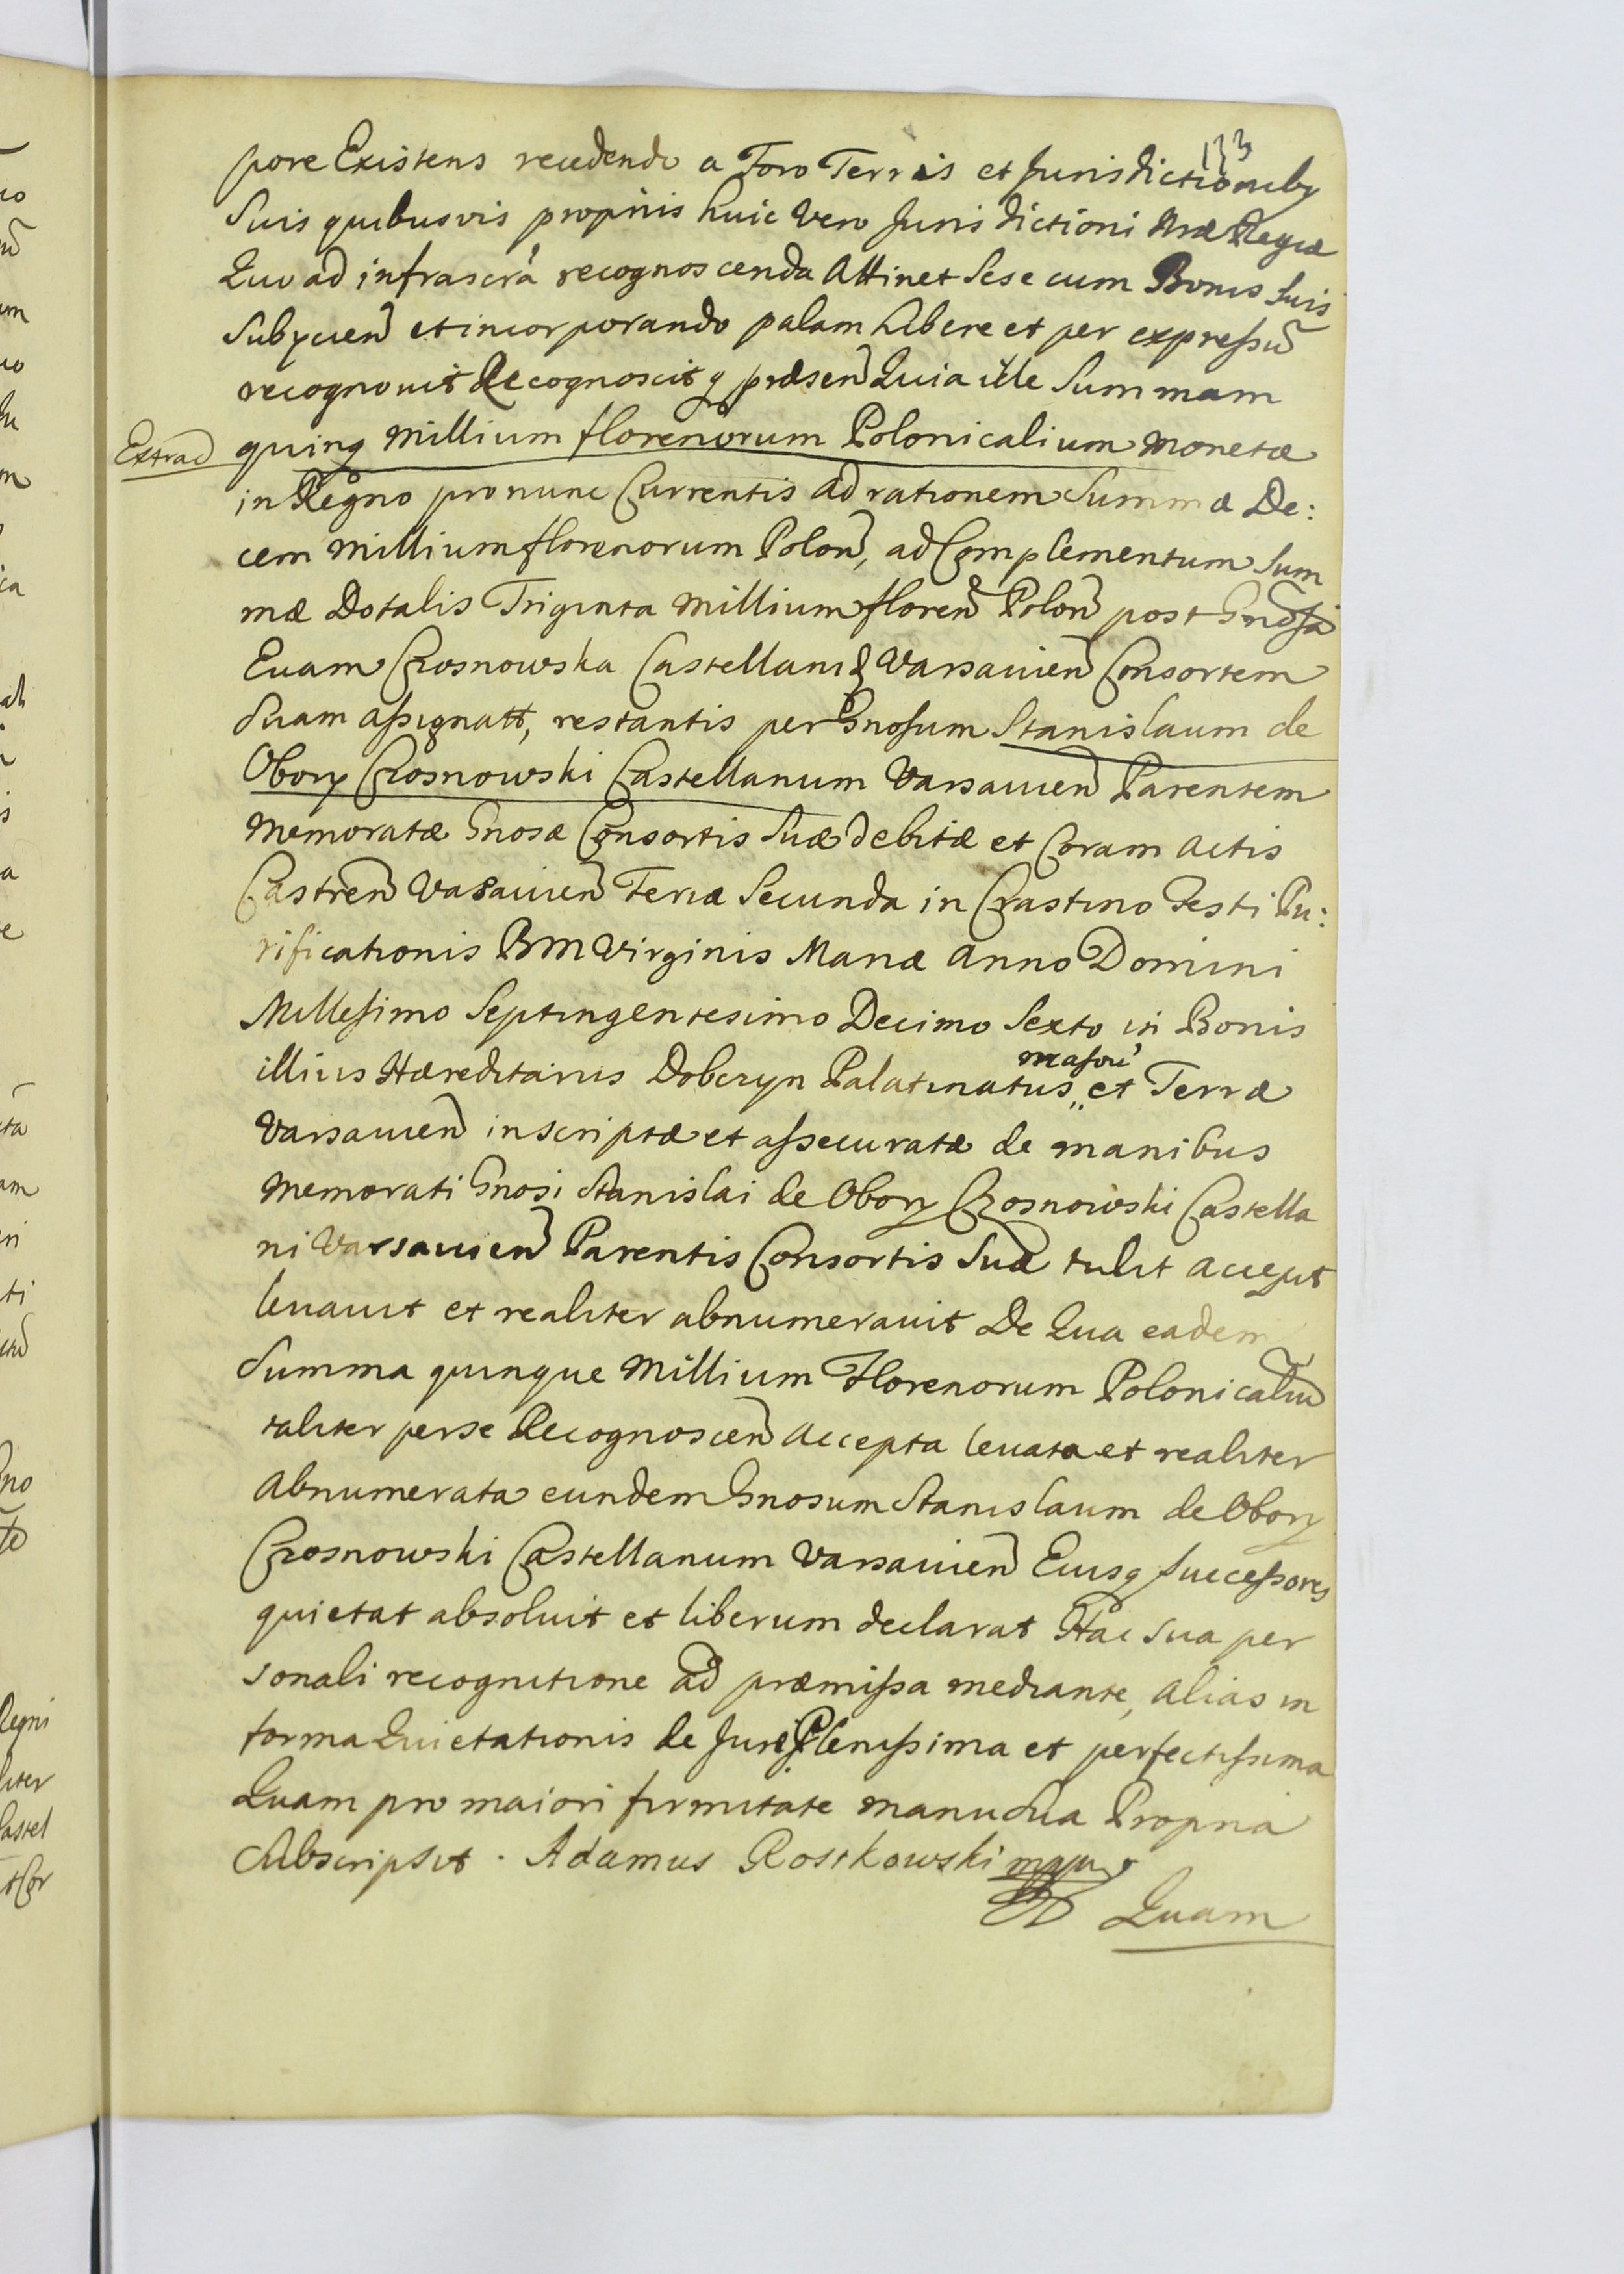 133
pore Existens recedendo a Foro Terris et Jurisdictioniby
Suis quibusvis proprijs huic Vero Jurisdictioni Nræ Regiæ
Quo ad infrascrã recognoscenda Attinet Sese cum Bonis Suis
Subÿcien̄ et incorporando palam Libere et per expressū
recognouit Recognoscitq præsen̄ Quia ille Summam
Extrad
quinq Millium florenorum Polonicalium Monetæ
in Regno pro nunc Currentis ad rationem Summæ De:
cem Millium florenorum Polon̄, ad Complementum Sum
mæ Dotalis Triginta Millium floren̄ Polon̄ post Gnosã
Euam Grosnowska Castellani Varsauien̄ Consortem
Suam assignatt, restantis per Gnosum Stanislaum de
Obory Grosnowski Castellanum Varsauien̄ Parentem
Memoratæ Gnosæ Consortis Suæ debitæ et Coram Actis
Castren̄ Vasauien̄ Feria Secunda in Crastino Festi Pu:
rificationis BM Virginis Mariæ Anno Domini
Millesimo Septingentesimo Decimo Sexto in Bonis
illius Hæreditarijs Dobczyn Palatinatus et Terræ
masou
Varsauien̄ inscriptæ et assecuratæ de manibus
Memorati Gnosi Stanislai de Obory Grosnowski Castella
ni Varsauien̄ Parentis Consortis Suæ tulit accepit
leuauit et realiter abnumerauit De Qua eadem
Summa quinque Millium Florenorum Polonicaliū
taliter per se Recognoscen̄ accepta leuata et realiter
Abnumerata eundem Gnosum Stanislaum de Obory
Grosnowski Castellanum Varsauien̄ Eiusq successores
quietat absoluit et liberum declarat Hac sua per
sonali recognitione ad præmissa mediante, alias in
forma Quietationis de Jure Plenissima et perfectissima
Quam pro maiori firmitate manu Sua Propria
Subscripsit. Adamus Rostkowski mppr
Quam